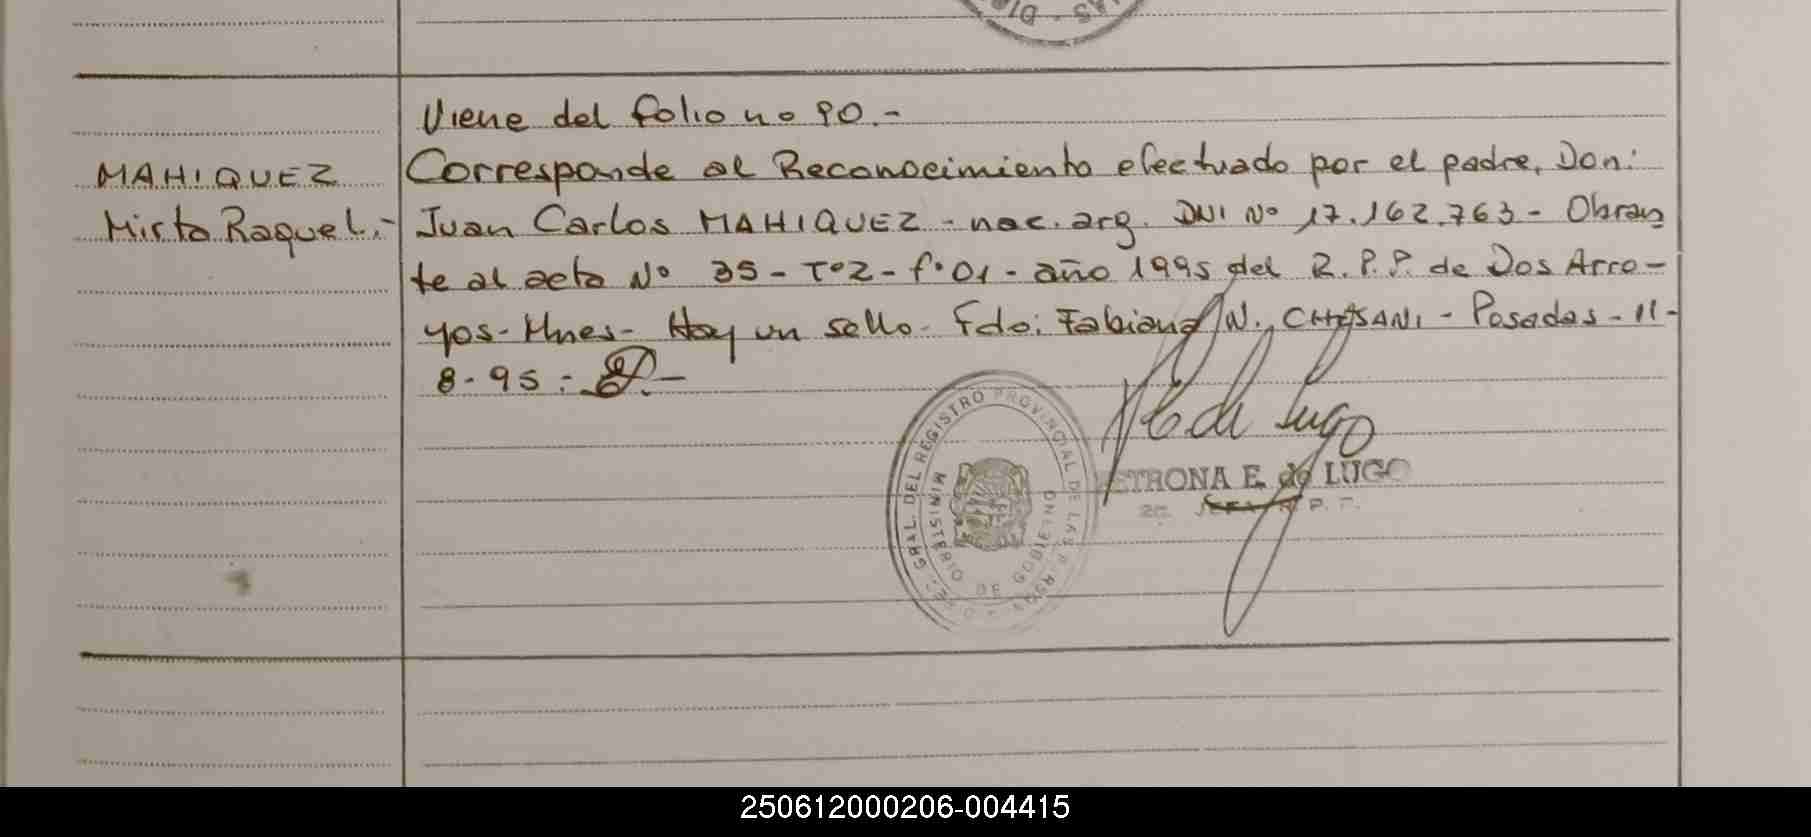 Viene del folio no 90.-
MAHIQUEZ
Mirta Raquel.-
Corresponde al Reconocimiento efectuado por el padre, Don:
Juan Carlos MAHIQUEZ - nac. arg. DNI Nº 17.162.763 - Obran
te al acta Nº 35 - Tº2 - fº01 - año 1995 del R.P.P. de Dos Arro-
yos - Mnes - Hay un sello - Fdo: Fabiana N. CHESANI - Posadas - 11-
8-95:
DE LUGO
GRAL. DEL REGISTRO PROVINCIAL DE LAS PERSONAS
MINISTERIO DE GOBIERNO
ETRONA E. de LUGO
250612000206-004415